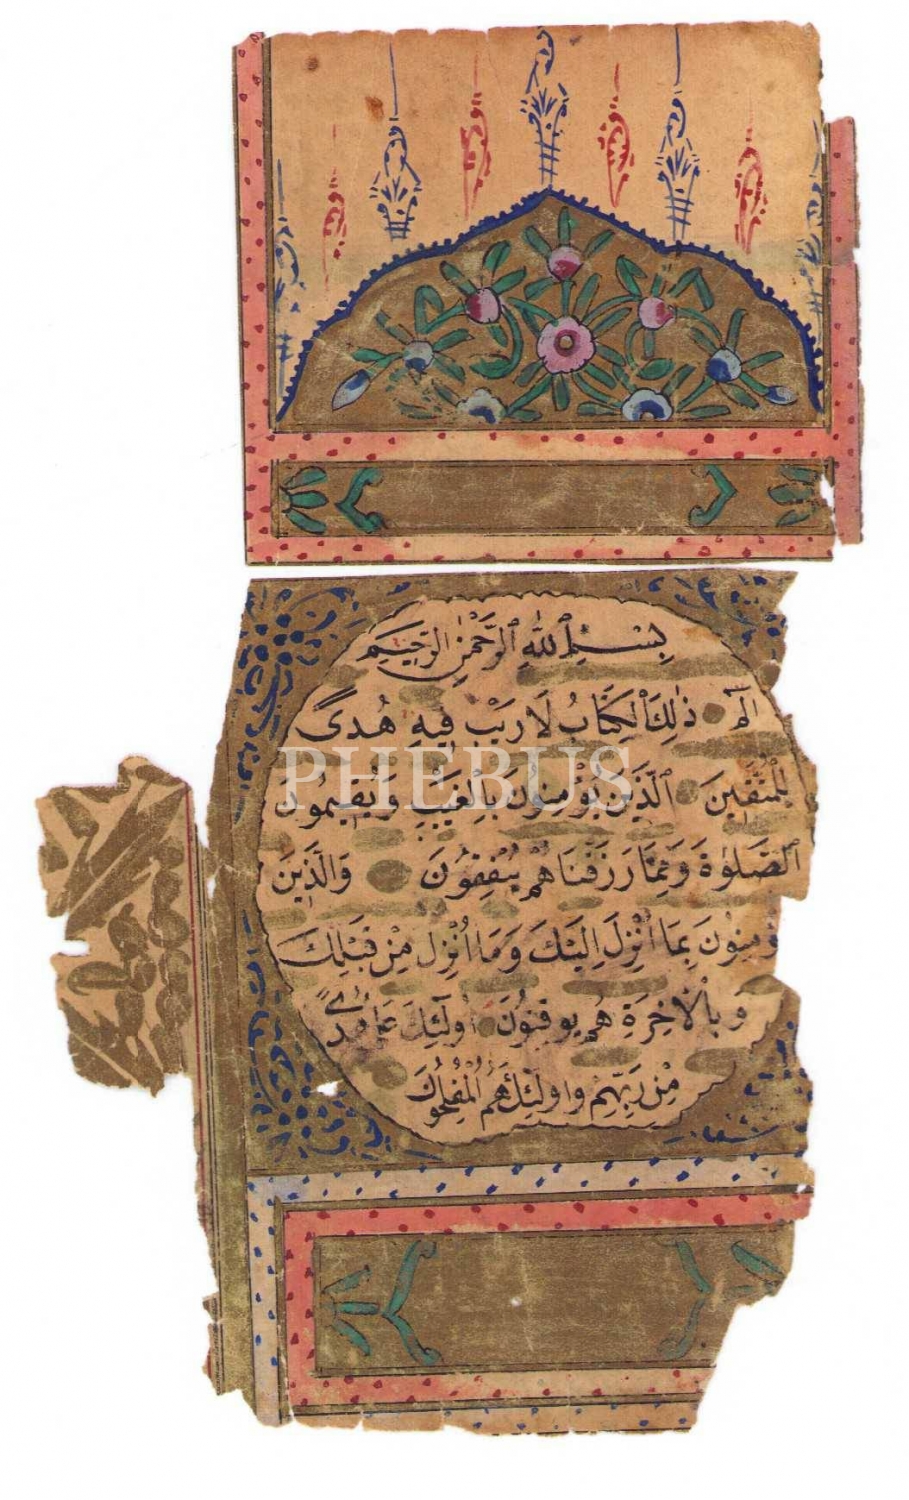 بِسْمِ ٱللّٰهِ ٱلرَّحْمٰنِ ٱلرَّحِيمِ
الٓمٓ ذٰلِكَ ٱلْكِتَابُ لَا رَيْبَ فِيهِ هُدًى
لِلْمُتَّقِينَ ٱلَّذِينَ يُؤْمِنُونَ بِٱلْغَيْبِ وَيُقِيمُونَ
ٱلصَّلٰوةَ وَمِمَّا رَزَقْنَاهُمْ يُنْفِقُونَ وَالَّذِينَ
ؤْمِنُونَ بِمَا اُنْزِلَ اِلَيْكَ وَمَا اُنْزِلَ مِنْ قَبْلِكَ
وَبِالْاٰخِرَةِ هُمْ يُوقِنُونَ اُولٰٓئِكَ عَلٰى هُدًى
مِنْ رَبِّهِمْ وَاُولٰٓئِكَ هُمُ الْمُفْلِحُونَ
PHEBUS